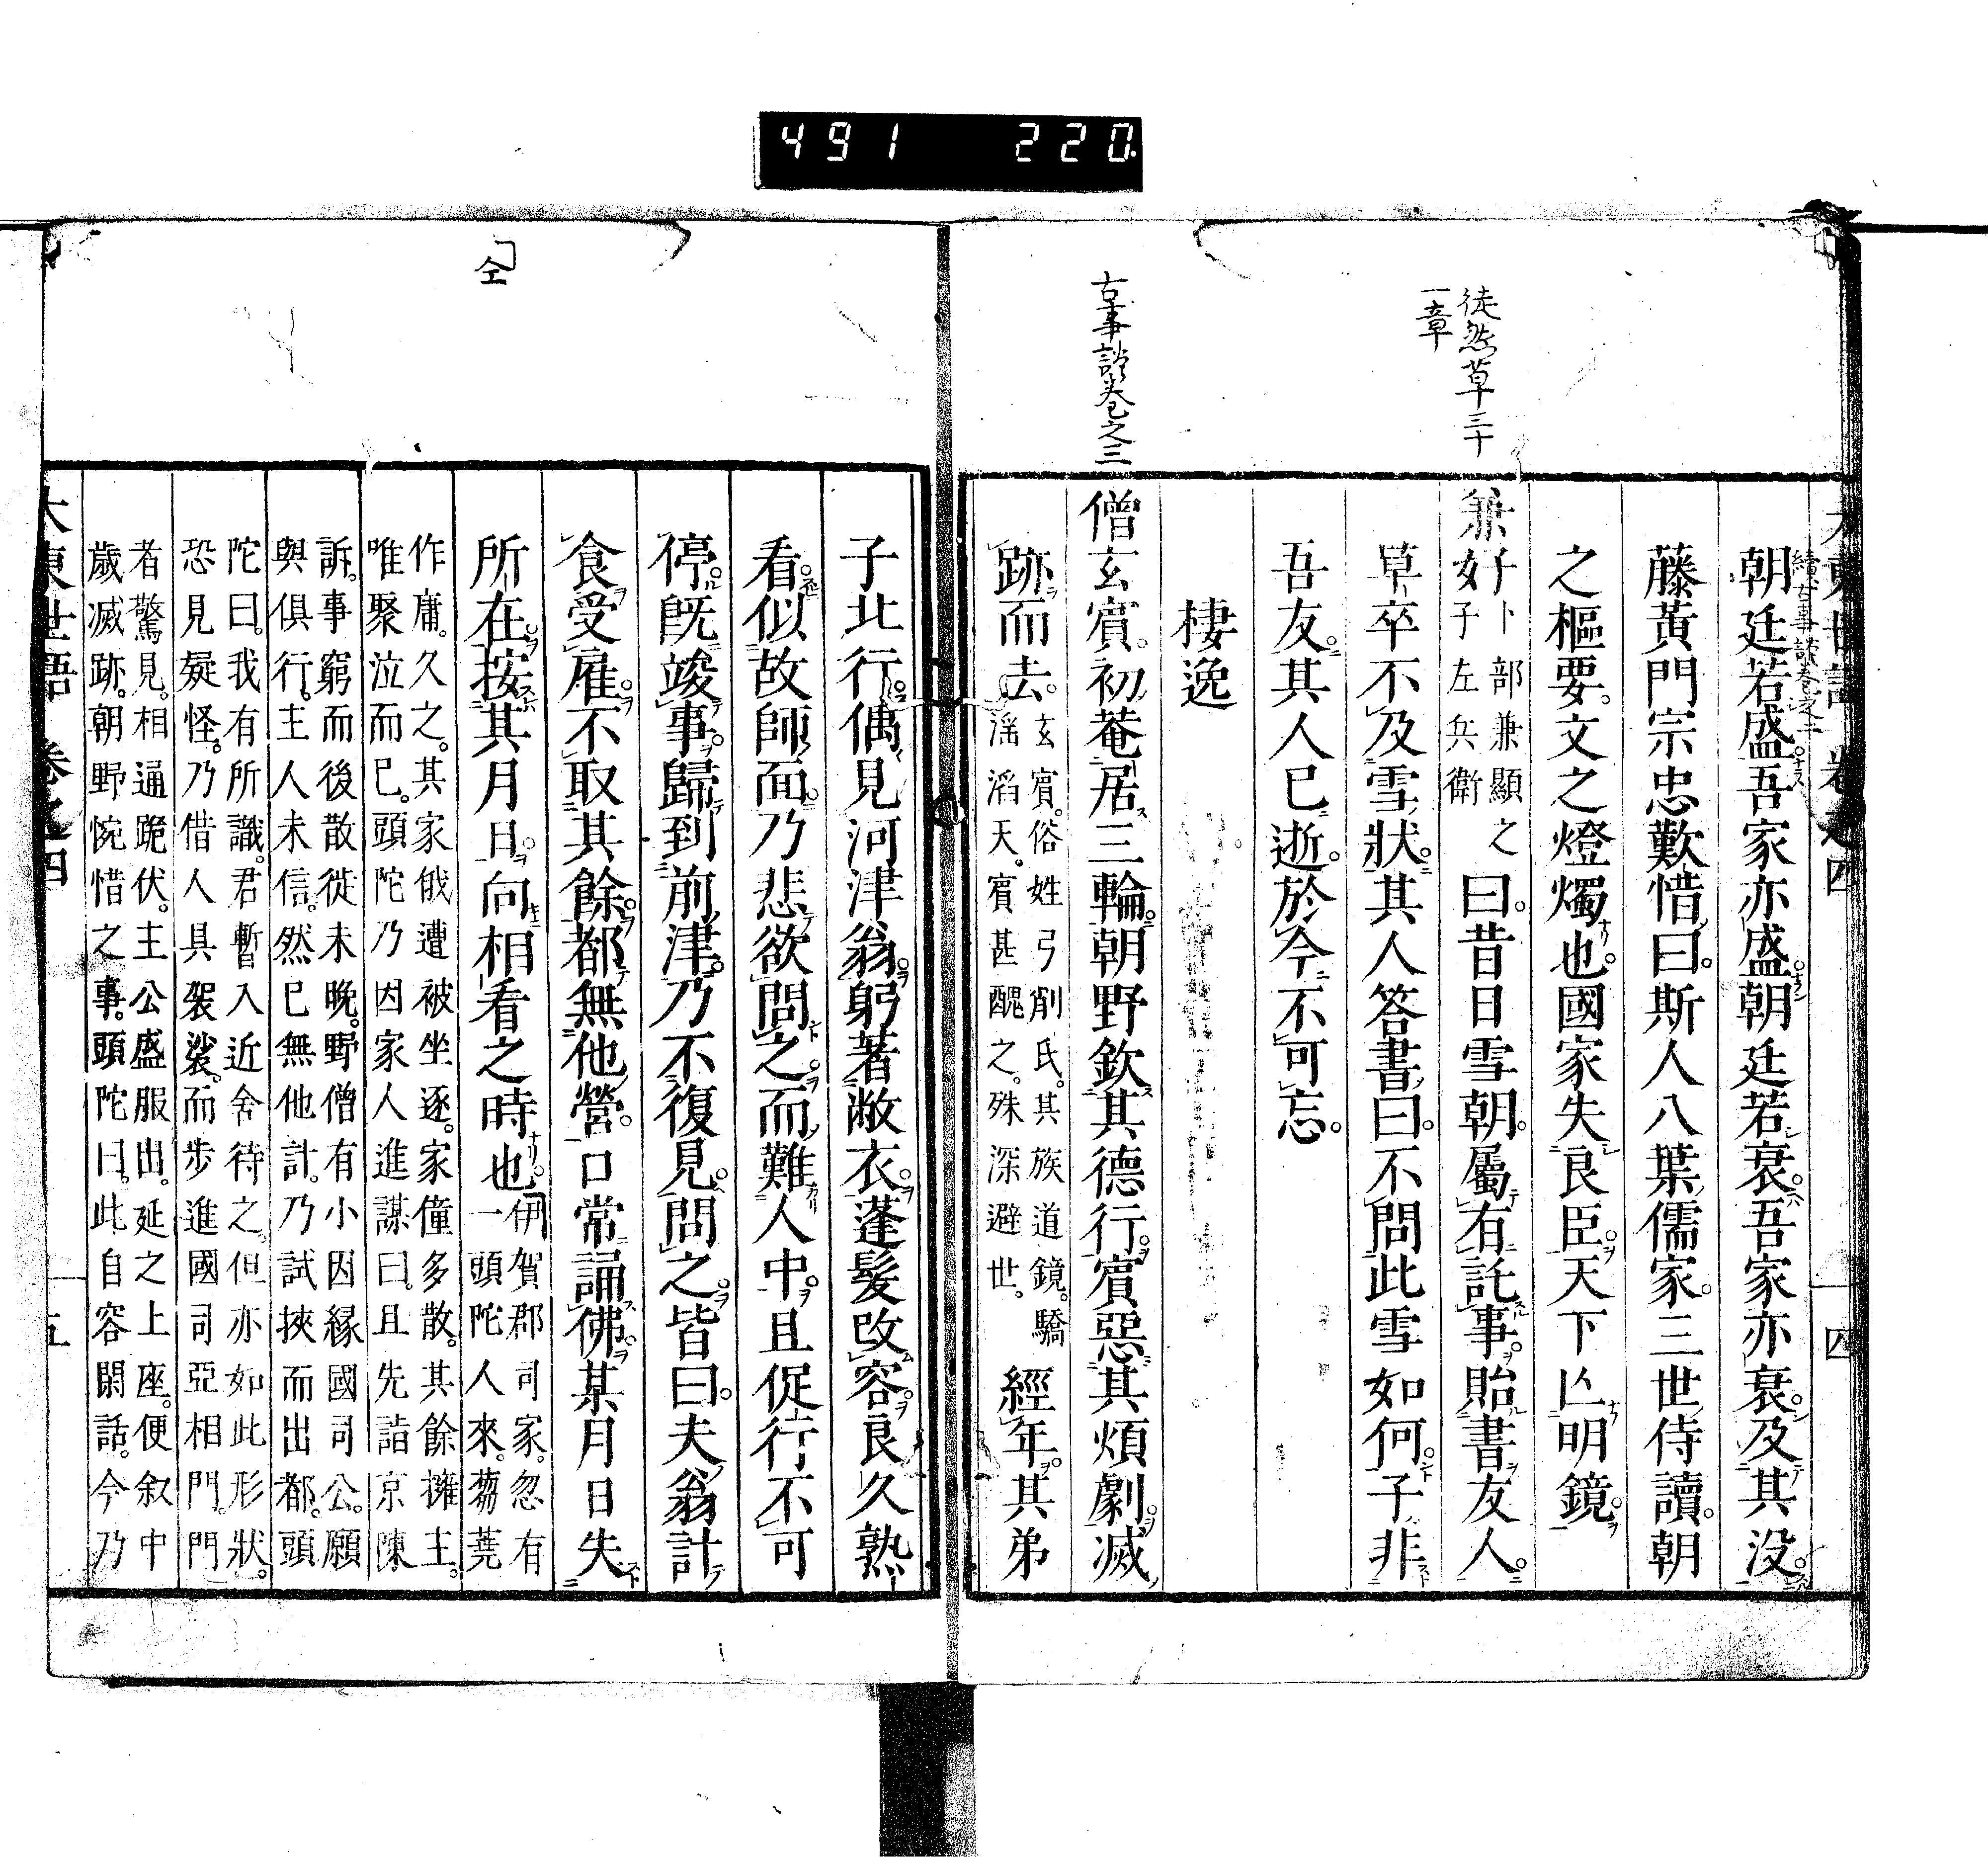 491 220
大東世語 卷之四 四
續古事談卷之一
朝廷若盛吾家亦盛朝廷若衰吾家亦衰及其没
藤黃門宗忠歎惜曰斯人八葉儒家三世侍讀朝
之樞要文之燈燭也國家失良臣天下亾明鏡
徒然草三十
一章
兼好卜部兼顯之
子左兵衛曰昔日雪朝屬有託事貽書友人
草卒不及雪狀其人答書曰不問此雪如何子非
吾友其人已逝於今不可忘
棲逸
古事談卷之三
僧玄賓初菴居三輪朝野欽其德行賓惡其煩劇滅
跡而去玄賓俗姓弓削氏其族道鏡驕
滛滔天賓甚醜之殊深避世經年其弟
子北行偶見河津翁躬著敝衣蓬髮改容良久熟
看似故師面乃悲欲問之而難人中且促行不可
停既竣事歸到前津乃不復見問之皆曰夫翁計
食受雇不取其餘都無他營口常誦佛某月日失
仝
所在按其月日向相看之時也伊賀郡司家忽有
一頭陀人來蒭蕘
作庸久之其家俄遭被坐逐家僮多散其餘擁主
唯聚泣而已頭陀乃因家人進謀曰且先詣京陳
訴事窮而後散徙未晚野僧有小因緣國司公願
與俱行主人未信然已無他計乃試挾而出都頭
陀曰我有所識君暫入近舍待之但亦如此形狀
恐見疑怪乃借人具袈裟而步進國司亞相門門
者驚見相通跪伏主公盛服出延之上座便叙中
歲滅跡朝野惋惜之事頭陀曰此自容閑話今乃
大東世語 卷之四 五